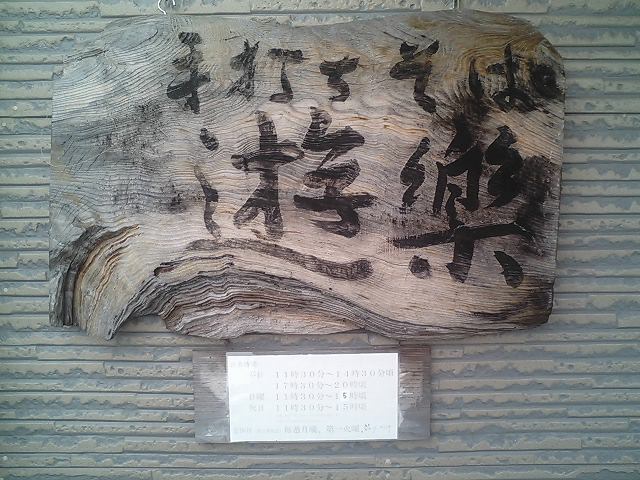 手打ちそば
遊樂
営業時間
平日 11時30分～14時30分頃
17時30分～20時頃
日曜 11時30分～15時頃
祝日 11時30分～15時頃
定休日 毎週月曜、第一火曜、